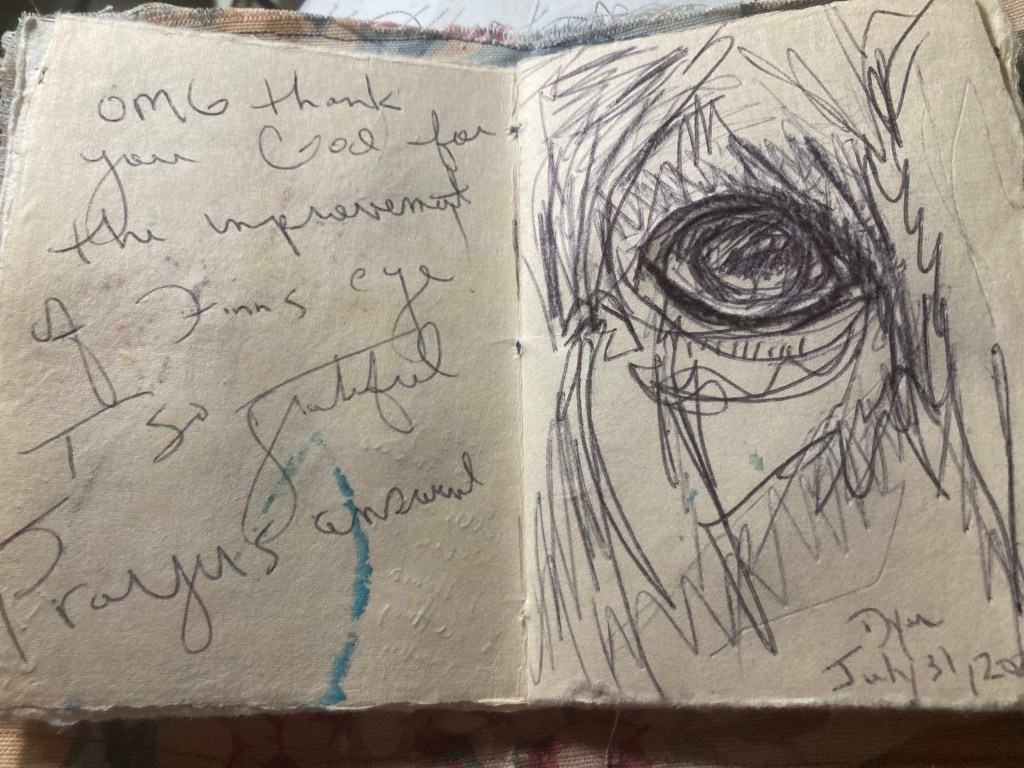 OMG thank
you God for
the improvement
of Finns eye
I so grateful
Prayers answerd
Dyer
July 31, 20